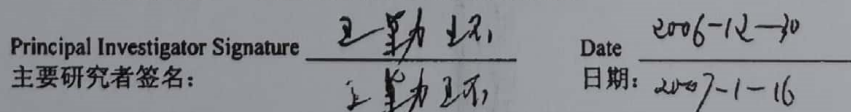 Principal Investigator Signature Date 2006-12-30
主要研究者签名： 日期： 2007-1-16